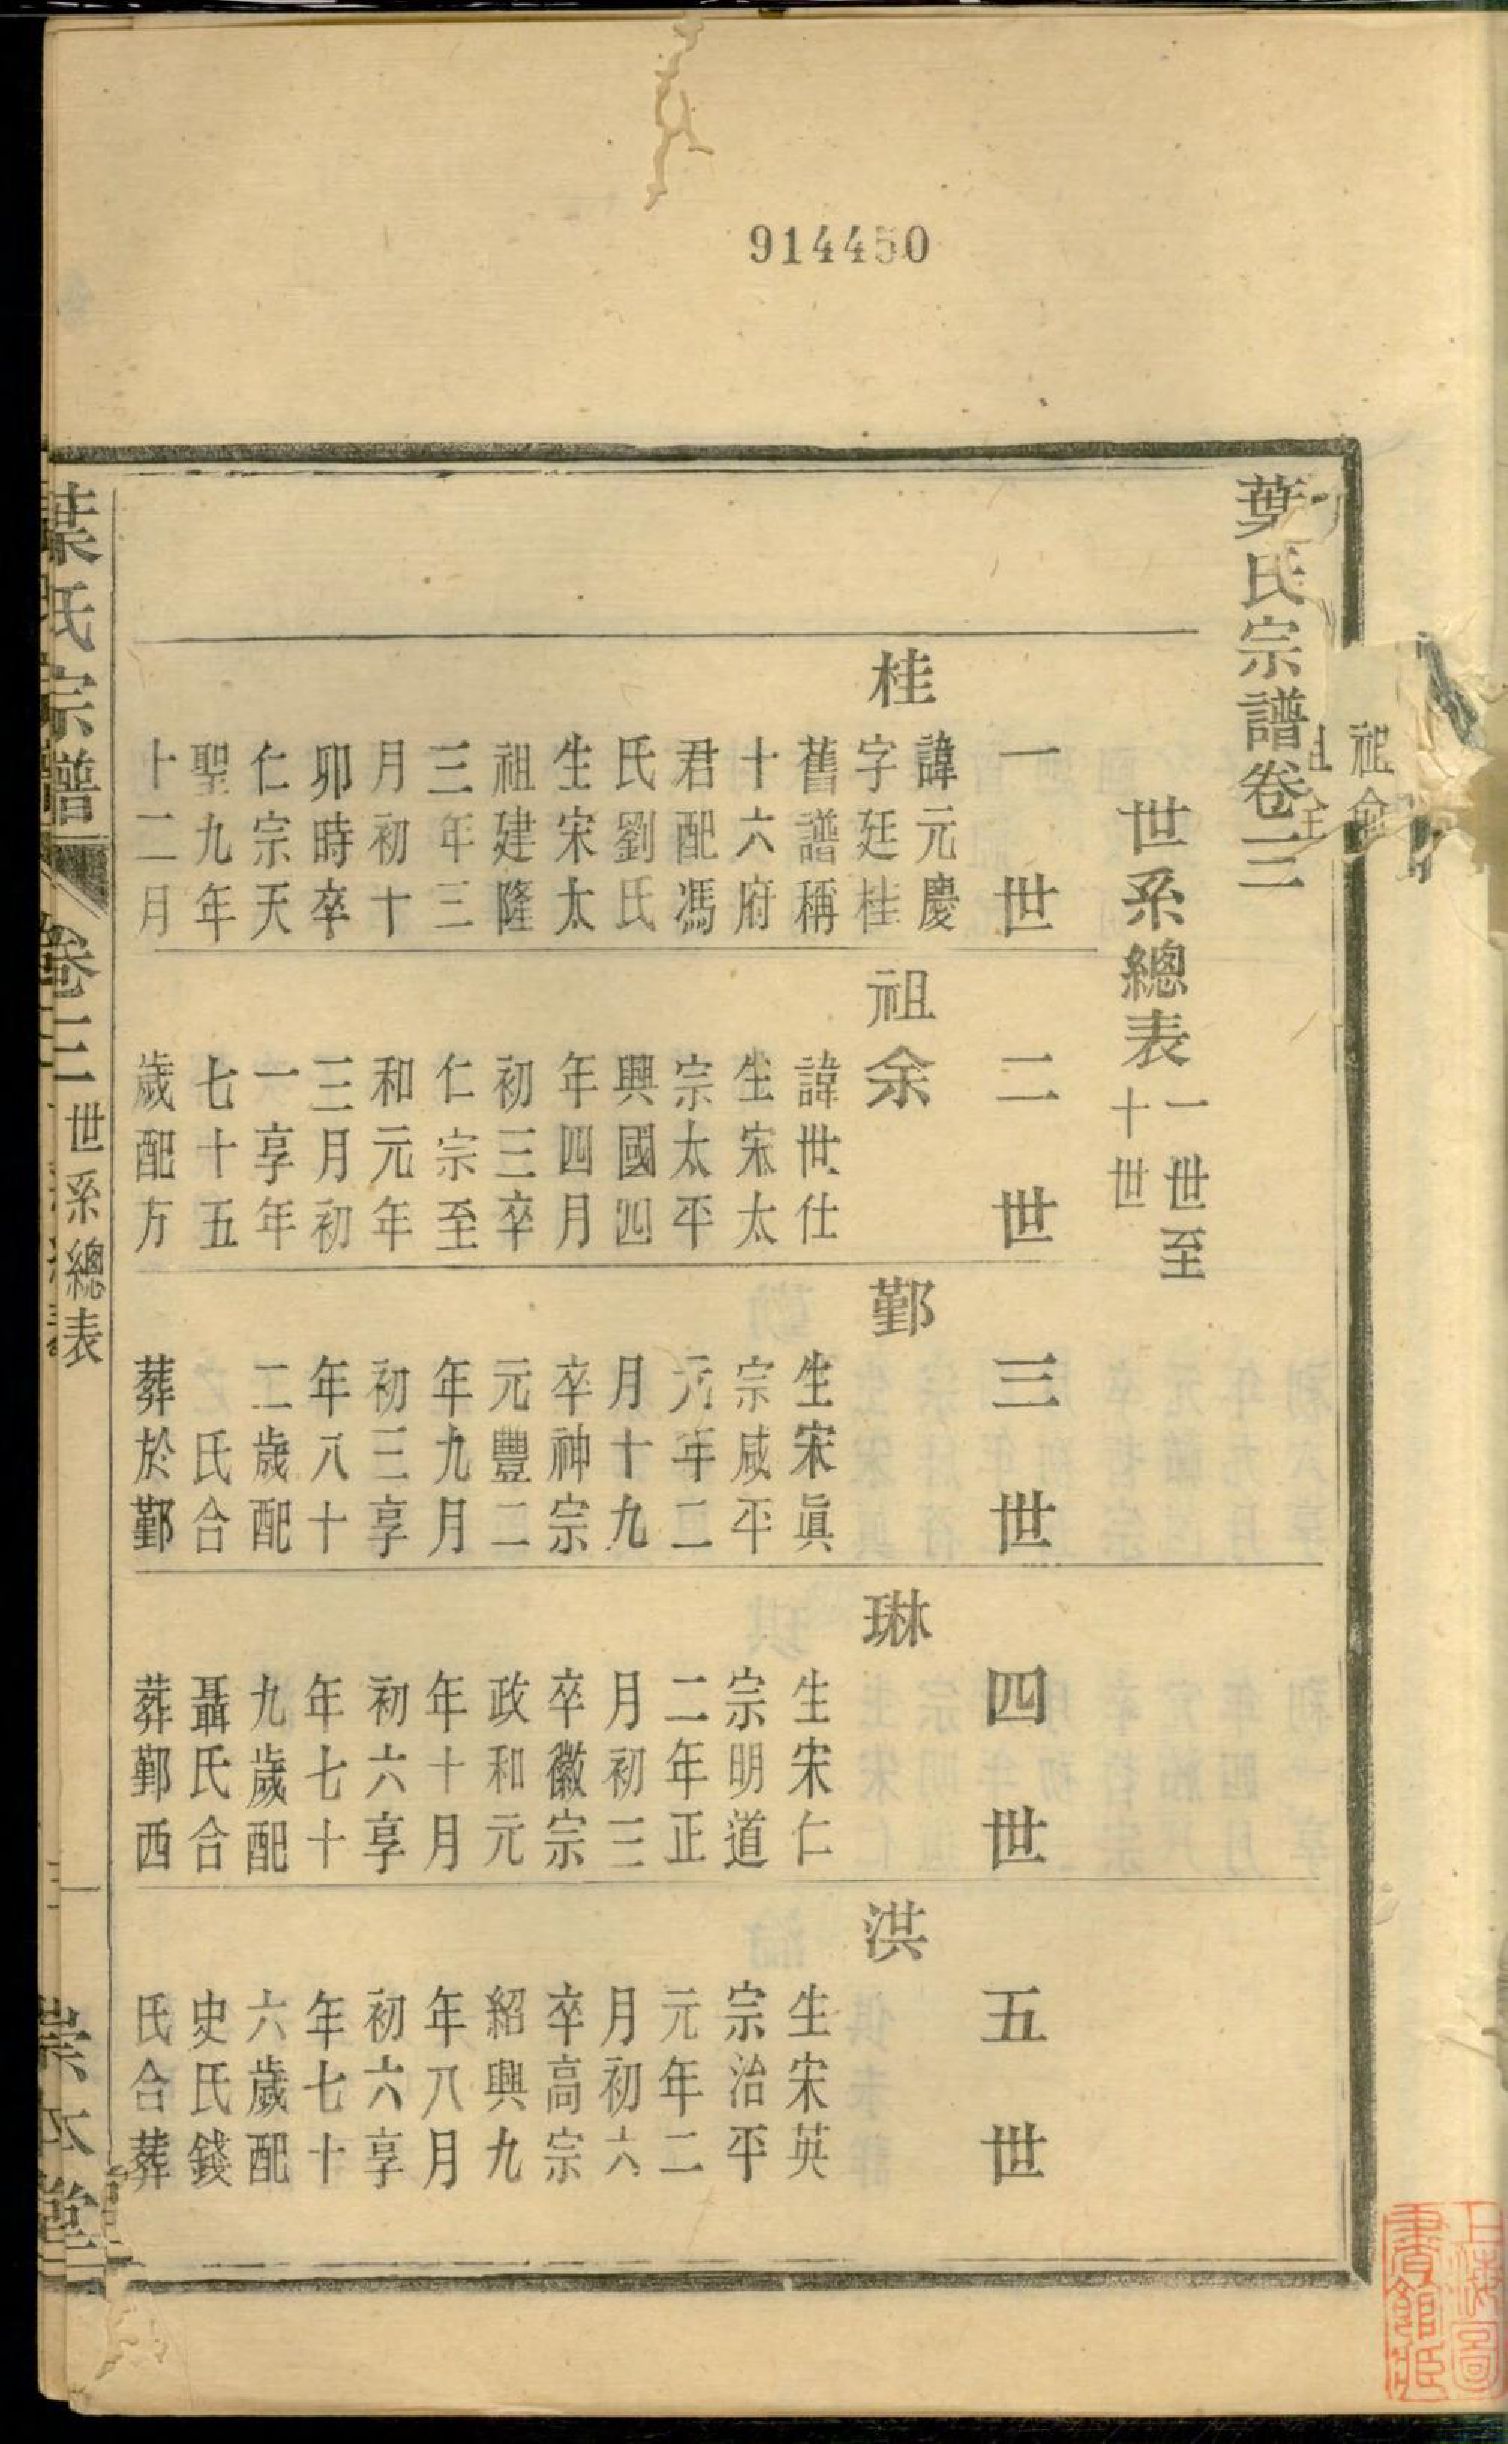 914450
葉氏宗譜卷三
世系總表
一世至
十世
一世
桂
諱元慶
字廷桂
舊譜稱
十六府
君配馮
氏劉氏
生宋太
祖建隆
三年三
月初十
卯時卒
仁宗天
聖九年
十二月
二世
祖余
諱世仕
生宋太
宗太平
興國四
年四月
初三卒
仁宗至
和元年
三月初
一享年
七十五
歲配方
三世
鄞
生宋眞
宗咸平
元年二
月十九
卒神宗
元豐二
年九月
初三享
年八十
二歲配
氏合
葬於鄞
四世
琳
生宋仁
宗明道
二年正
月初三
卒徽宗
政和元
年十月
初六享
年七十
九歲配
聶氏合
葬鄞西
五世
洪
生宋英
宗治平
元年二
月初六
卒高宗
紹興九
年八月
初六享
年七十
六歲配
史氏錢
氏合葬
葉氏宗譜
卷三
世系總表
一